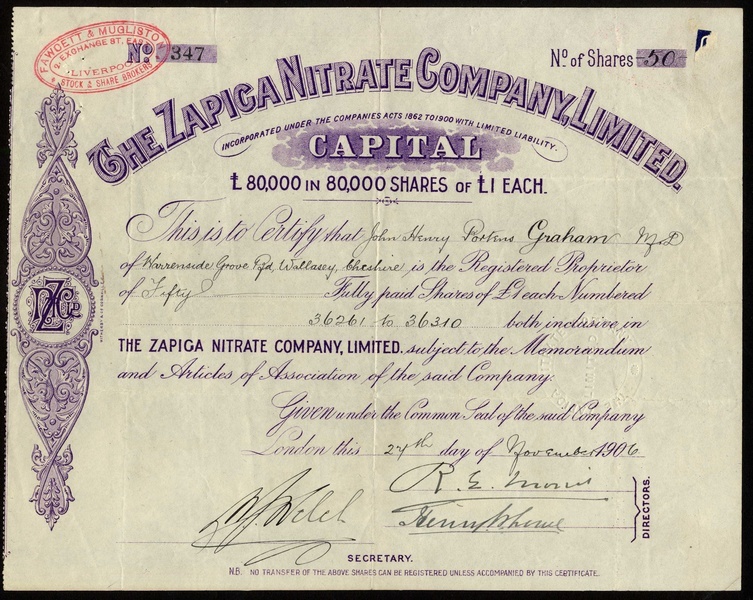 FAWCETT & MUGLISTON
2, EXCHANGE ST. EAST
LIVERPOOL
STOCK & SHARE BROKERS
No. 347
No. of Shares 50
THE ZAPIGA NITRATE COMPANY, LIMITED.
INCORPORATED UNDER THE COMPANIES ACTS 1862 TO 1900 WITH LIMITED LIABILITY.
CAPITAL
£ 80,000 IN 80,000 SHARES OF £1 EACH.
This is to Certify that John Henry Porteus Graham M.D
of Warrenside Grove Rd, Wallasey, Cheshire is the Registered Proprietor
of Fifty Fully paid Shares of £1 each Numbered
36261 to 36310 both inclusive, in
THE ZAPIGA NITRATE COMPANY, LIMITED. subject to the Memorandum
and Articles of Association of the said Company.
Given under the Common Seal of the said Company
London this 27th day of November 1906
R. E. Morris
W J Welch
DIRECTORS.
SECRETARY.
N.B. NO TRANSFER OF THE ABOVE SHARES CAN BE REGISTERED UNLESS ACCOMPANIED BY THIS CERTIFICATE.